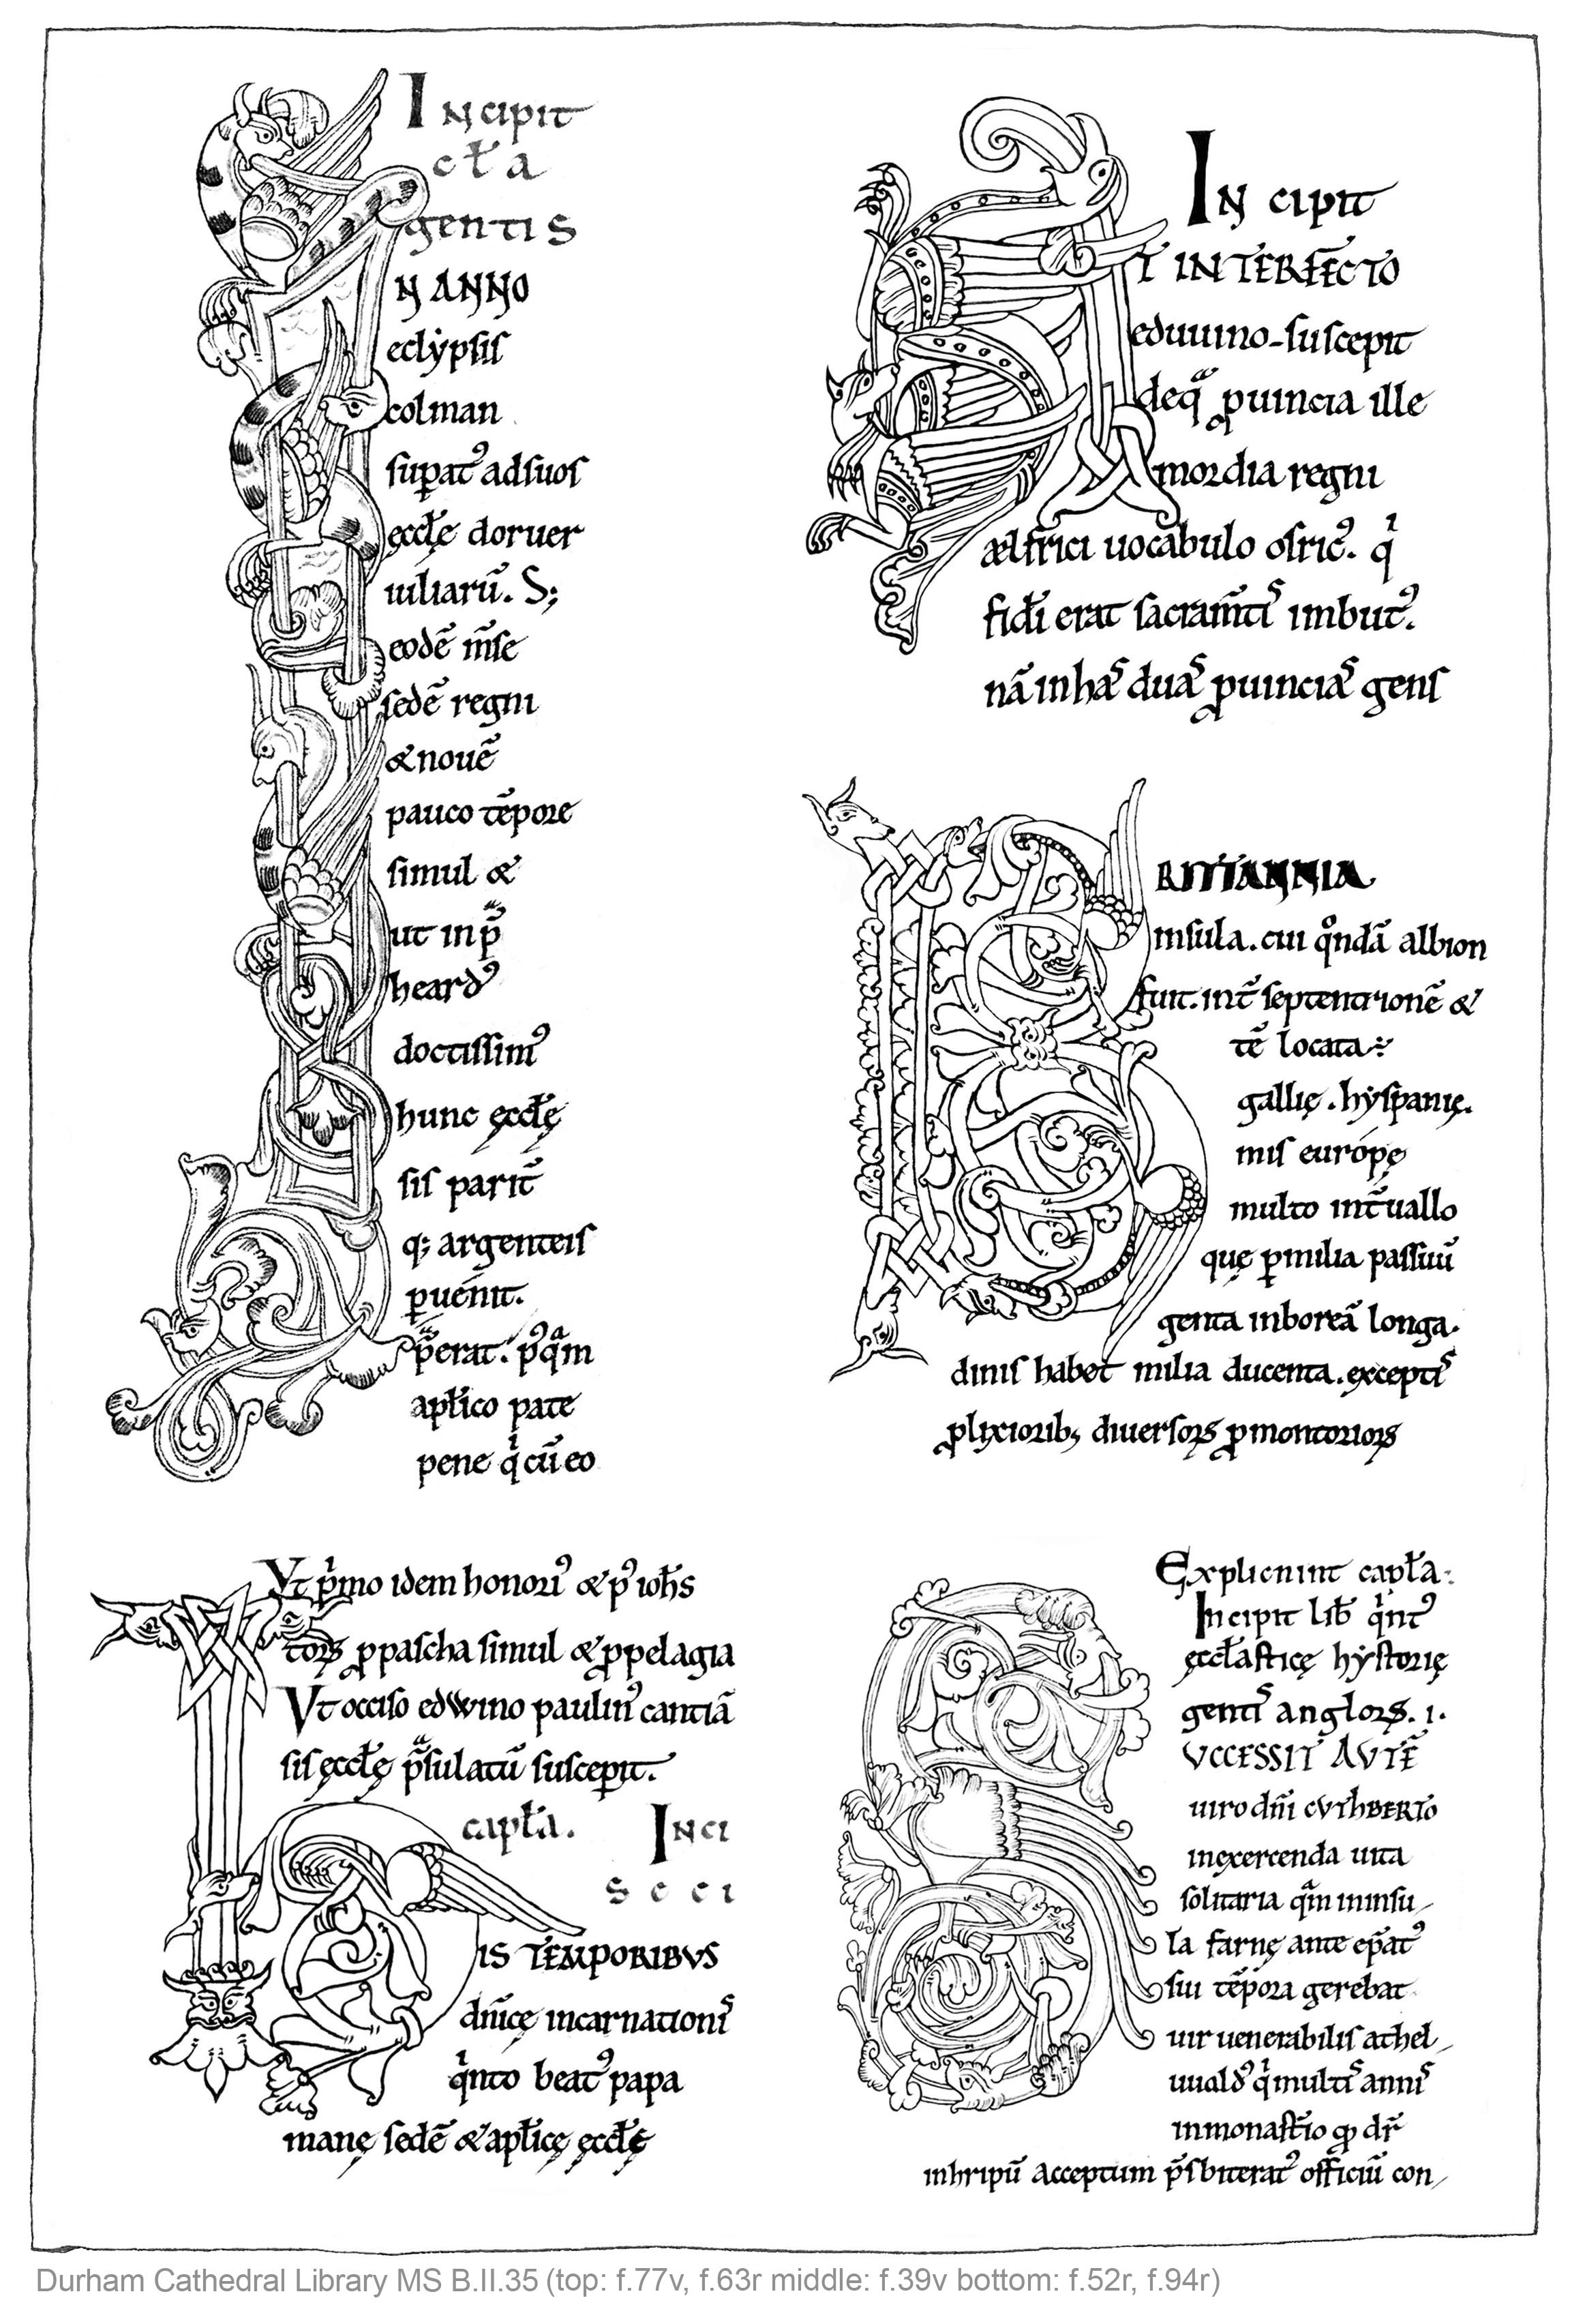 IN cipit
cl̄a
gentis
N ANNO
eclypsis
colman
sup̱at᾽ adsuos
ęccl̄ę doruer
iuliarū. S;
eodē m̄se
sedē regni
& nouē
pauco tēpore
simul &
ut in p̄
heard᾽
doctissim᾽
hunc ęccl̄ę
sis parit̄
q; argenteis
p̱uénit.
p̄erat. p᾽qᵃm
apl̄ico pate
pene qⁱ cū eo
IN cipit
T INTERFECTO
eduuino-suscepit
deq̄ ꝓuincia ille
mordia regni
ælfrici uocabulo osric᾽. qⁱ
fidei erat sacram̄tis imbut᾽.
nā in has duas ꝓuincias gens
BRITANNIA
insula. cui qᵒndā albion
fuit. int̄ septentrionē &
tē locata
gallię. hyspanię.
mis európę
multo int̄uallo
quę p̱ milia passuū
genta inboreā longa.
dinis habet milia ducenta. exceptis
ꝓlixiorib; diuersoꝝ ꝓmontorioꝝ
Vt pⁱmo idem honori᾽ & p᾽ ioh̄s
toꝝ ꝓ pascha simul & ꝓ pelagia
Vt occiso edwino paulin᾽ cantiā
sis ęccl̄ę p̄sulatū suscepit.
capl̄a. INci
s c ci
IS TEMPORIBVS
dn̄icę incarnationis
qⁱnto beat᾽ papa
manę sedē & apl̄icę ęccl̄ę
Expliciunt capl̄a.
Incipit lib̄ qⁱnt᾽
ęccl̄asticę hystorię
gentis angloꝝ. i.
VCCESSIT AVTĒ
uiro dn̄i CVTHBERTO
inexercenda uita
solitaria qᵃm ininsu
la farnę ante ep̄at᾽
sui tēpora gerebat
uir uenerabilis athel
uuald᾽ qⁱ multis annis
inmonast̄io ꝙ dr̄
inhripū acceptum p̄sbiterat᾽ officiū con
Durham Cathedral Library MS B.II.35 (top: f.77v, f.63r middle: f.39v bottom: f.52r, f.94r)